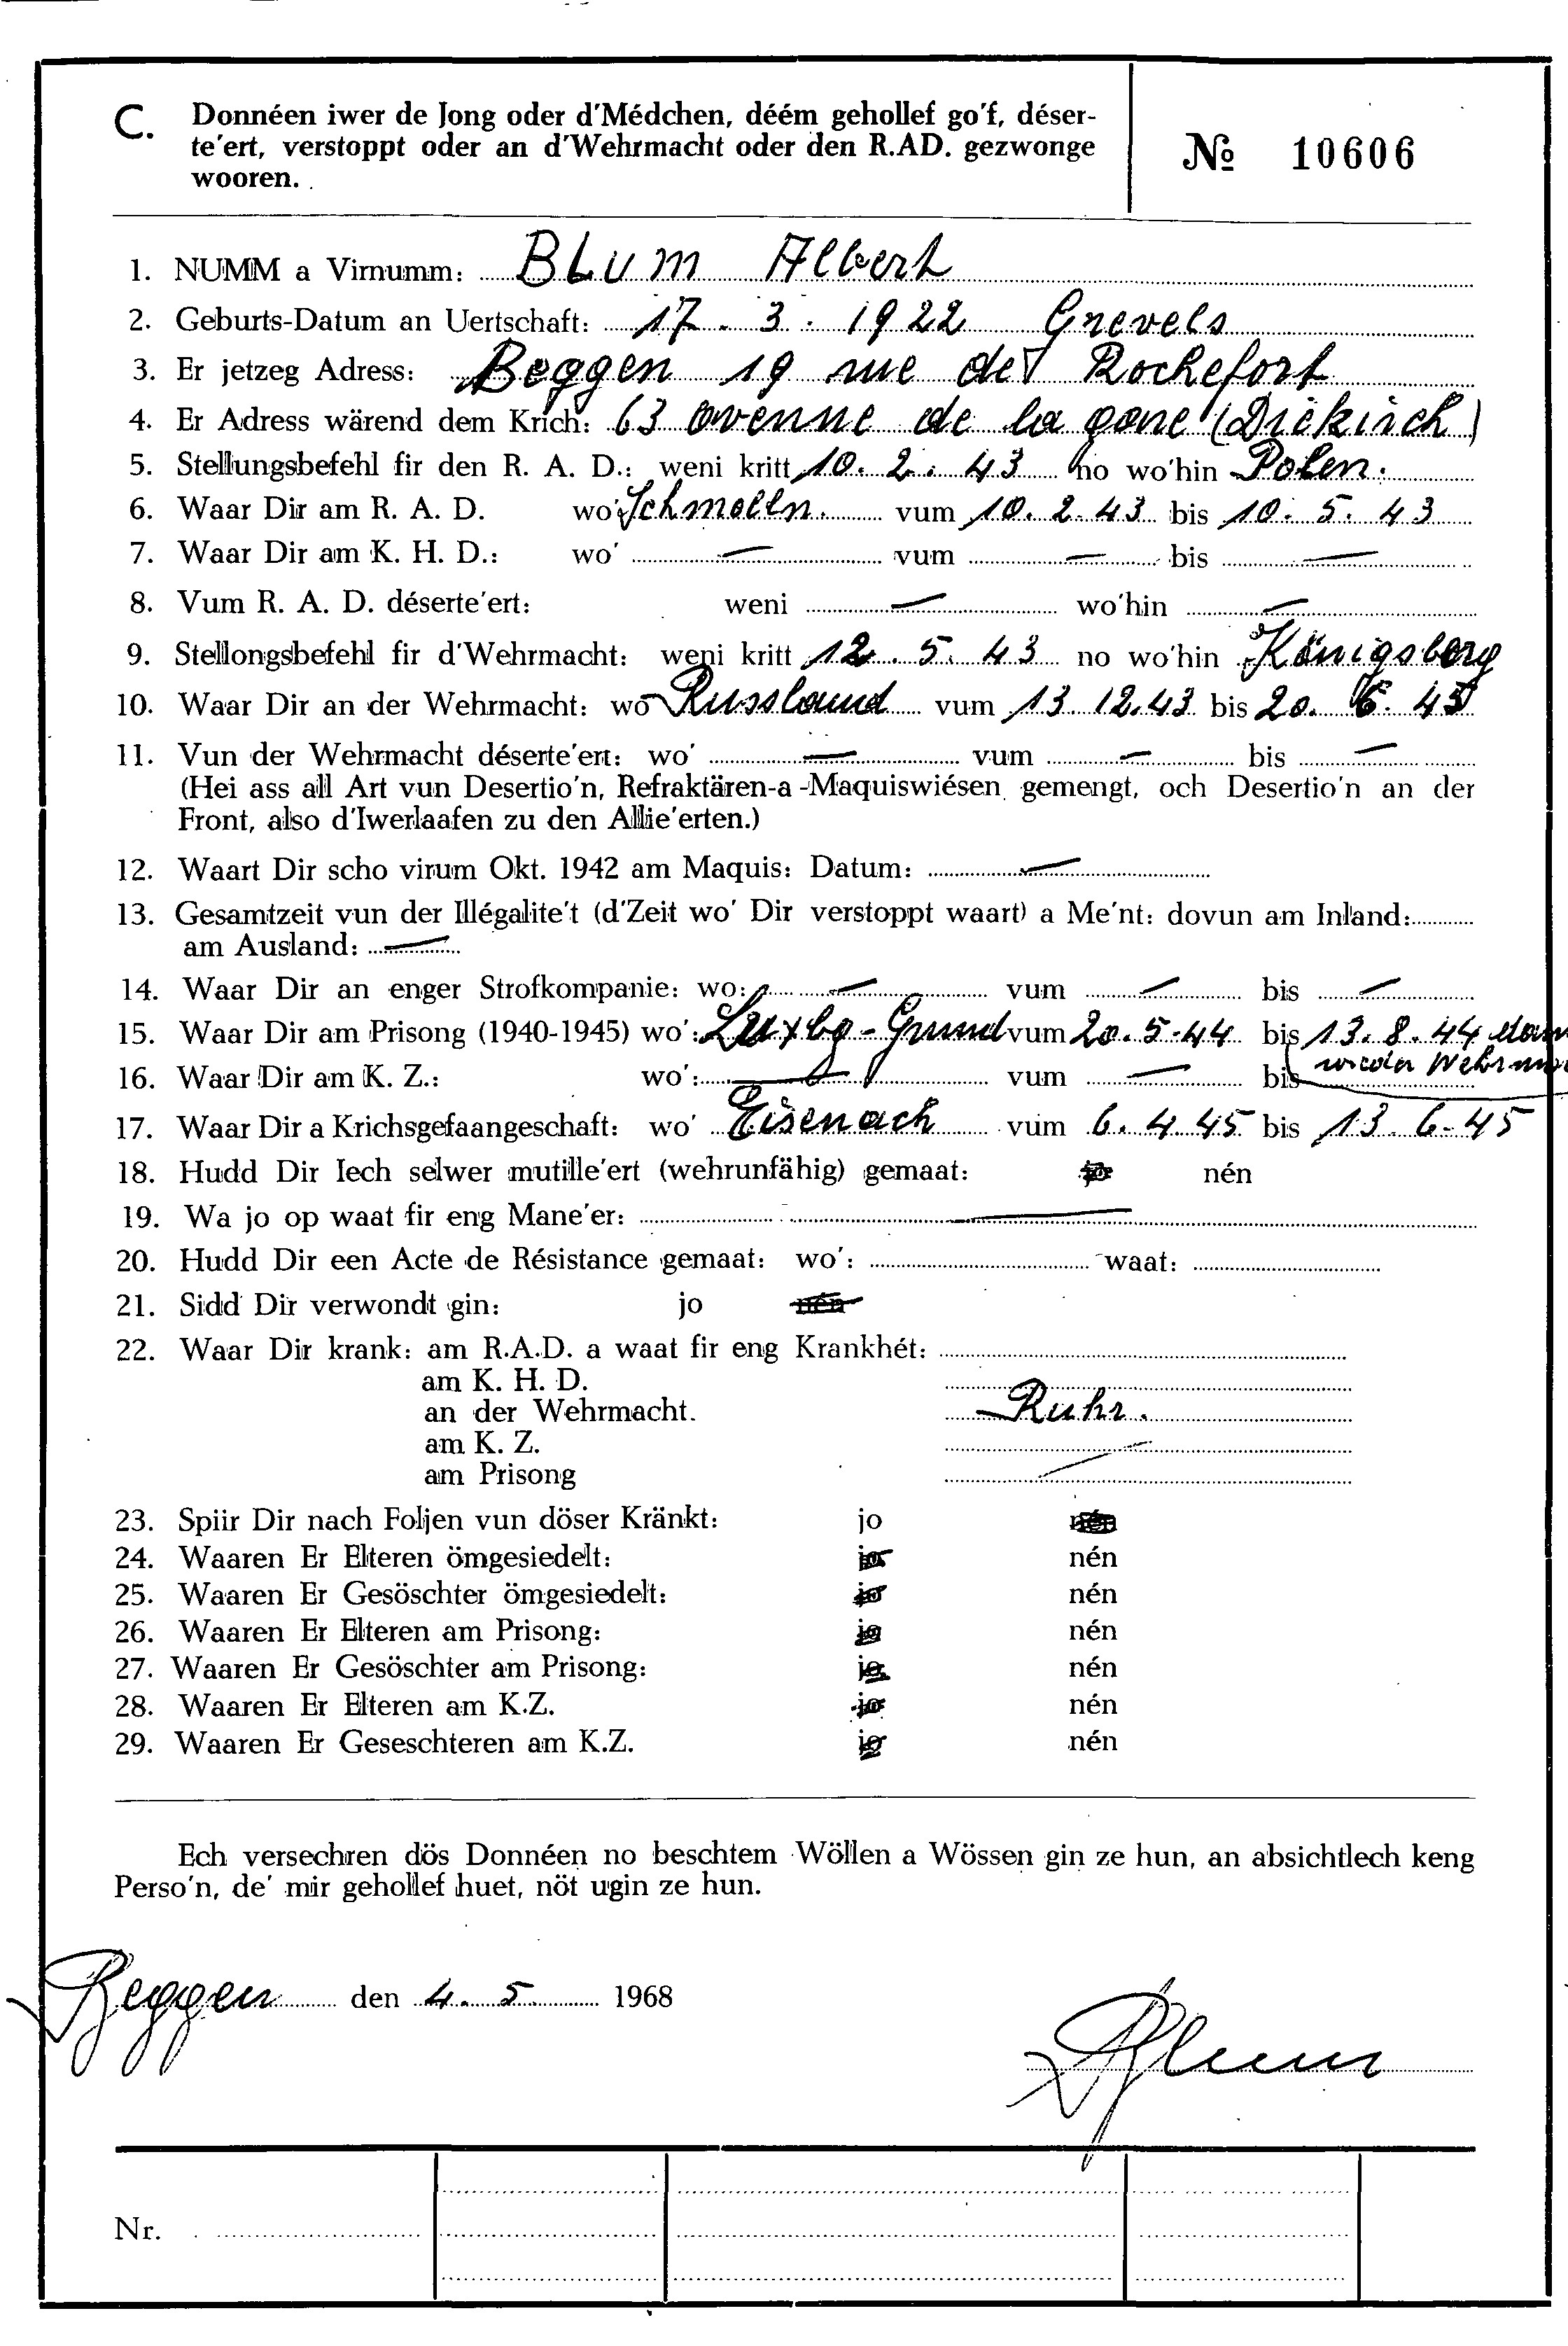 C. Donnéen iwer de Jong oder d'Médchen, déém gehollef go'f, déser-
te'ert, verstoppt oder an d'Wehrmacht oder den R.AD. gezwonge
wooren.
№ 10606
1. NUMM a Virnumm: BLUM Albert
2. Geburts-Datum an Uertschaft: 17. 3. 1922 Grevels
3. Er jetzeg Adress: Beggen 19 rue de Rochefort
4. Er Adress wärend dem Krich: 63 avenue de la gare (Diekirch)
5. Stellungsbefehl fir den R. A. D.: weni kritt 10. 2. 43 no wo'hin Polen.
6. Waar Dir am R. A. D. wo' Schmolln. vum 10. 2. 43 bis 10. 5. 43
7. Waar Dir am K. H. D.: wo' — vum — bis —
8. Vum R. A. D. déserte'ert: weni — wo'hin —
9. Stellongsbefehl fir d'Wehrmacht: weni kritt 12. 5. 43 no wo'hin Königsberg
10. Waar Dir an der Wehrmacht: wo Russland vum 13. 12. 43 bis 20. 6. 45
11. Vun der Wehrmacht déserte'ert: wo' — vum — bis —
(Hei ass all Art vun Desertio'n, Refraktären-a-Maquiswiésen gemengt, och Desertio'n an der
Front, also d'Iwerlaafen zu den Allie'erten.)
12. Waart Dir scho virum Okt. 1942 am Maquis: Datum: —
13. Gesamtzeit vun der Illégalite't (d'Zeit wo' Dir verstoppt waart) a Me'nt: dovun am Inland:
am Ausland: —
14. Waar Dir an enger Strofkompanie: wo: — vum — bis —
15. Waar Dir am Prisong (1940-1945) wo': Luxbg-Grund vum 20. 5. 44 bis 13. 8. 44 dann
wieder Wehrma
16. Waar Dir am K. Z.: wo': — vum — bis
17. Waar Dir a Krichsgefaangeschaft: wo' Eisenach vum 6. 4. 45 bis 13. 6. 45
18. Hudd Dir Iech selwer mutille'ert (wehrunfähig) gemaat: jo nén
19. Wa jo op waat fir eng Mane'er: —
20. Hudd Dir een Acte de Résistance gemaat: wo': waat:
21. Sidd Dir verwondt gin: jo nén
22. Waar Dir krank: am R.A.D. a waat fir eng Krankhét:
am K. H. D.
an der Wehrmacht. Ruhr.
am K. Z.
am Prisong
23. Spiir Dir nach Foljen vun döser Kränkt: jo nén
24. Waaren Er Elteren ömgesiedelt: jo nén
25. Waaren Er Gesöschter ömgesiedelt: jo nén
26. Waaren Er Elteren am Prisong: jo nén
27. Waaren Er Gesöschter am Prisong: jo nén
28. Waaren Er Elteren am K.Z. jo nén
29. Waaren Er Geseschteren am K.Z. jo nén
Ech versechren dös Donnéen no beschtem Wöllen a Wössen gin ze hun, an absichtlech keng
Perso'n, de' mir gehollef huet, nöt ugin ze hun.
Beggen den 4. 5. 1968
Blum
Nr.